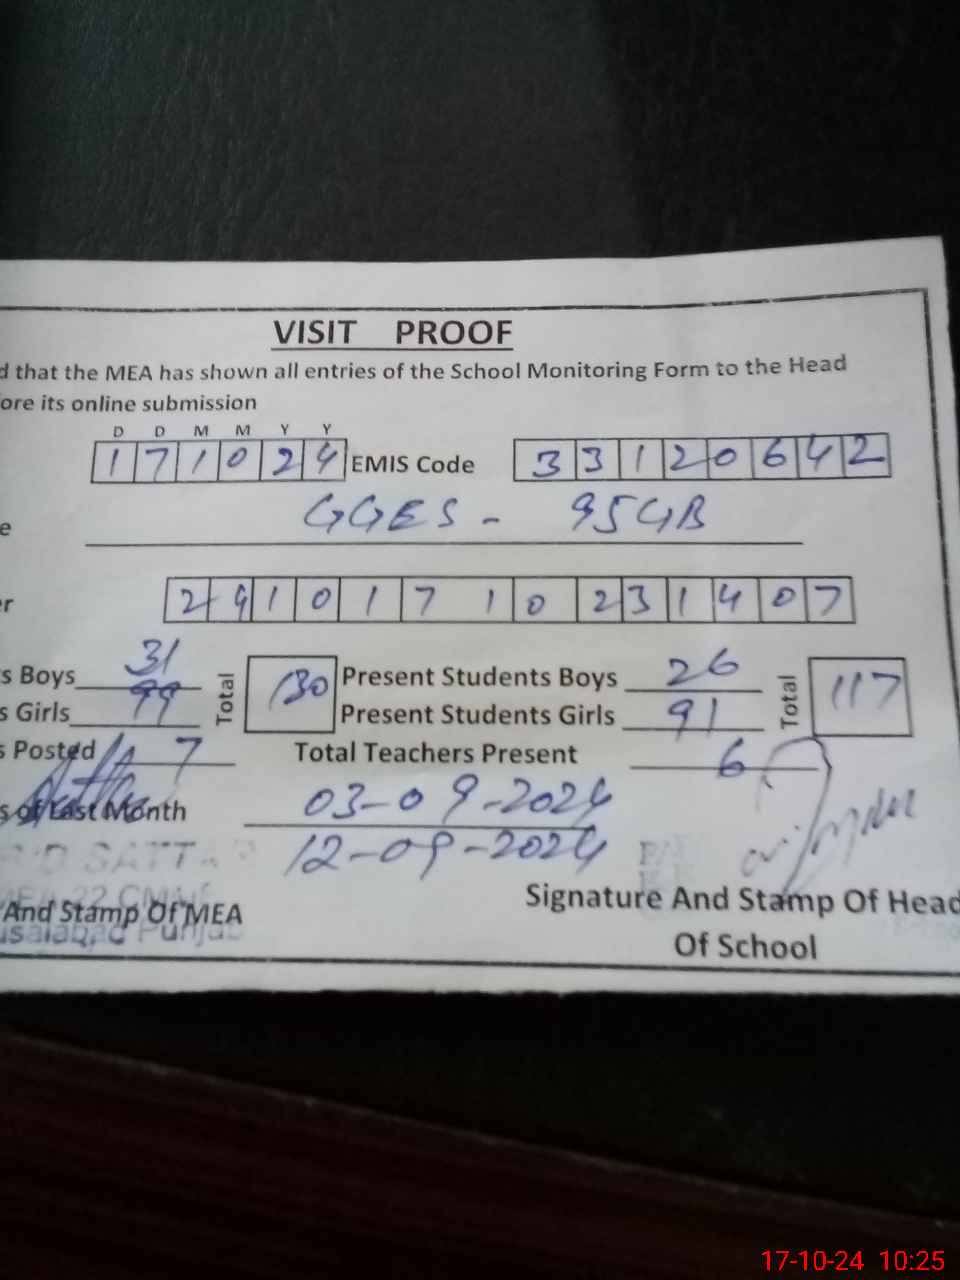 VISIT PROOF
d that the MEA has shown all entries of the School Monitoring Form to the Head
ore its online submission
D D M M Y Y
1 7 1 0 2 4 EMIS Code 3 3 1 2 0 6 4 2
e GGES - 95GB
r 2 9 1 0 1 7 1 0 2 3 1 4 0 7
s Boys 31 Total 130 Present Students Boys 26 Total 117
s Girls 99 Present Students Girls 91
s Posted 7 Total Teachers Present 6
s of Last Month 03-09-2024
12-09-2024
SATTAR
And Stamp Of MEA Signature And Stamp Of Head
Punjab Of School
17-10-24 10:25